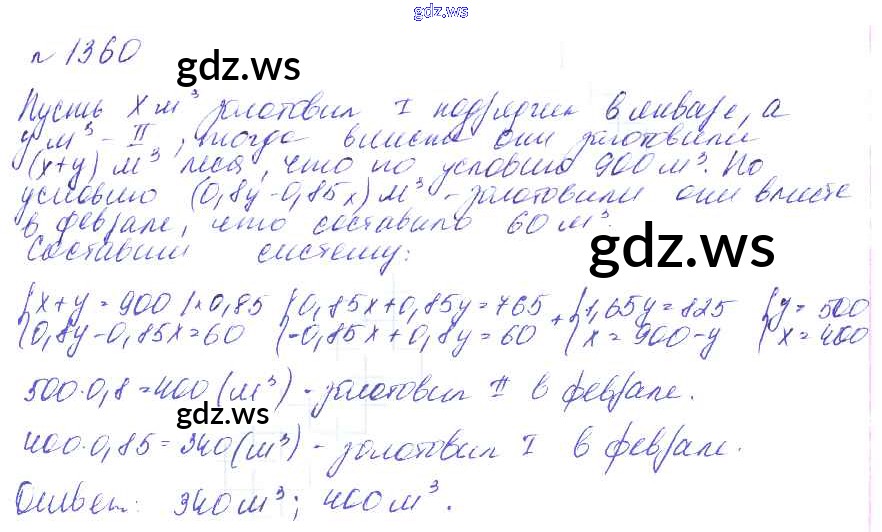 gdz.ws
n 1360
gdz.ws
Пусть x м³ заготовил I подрядчик в январе, а
y м³ - II, тогда вместе они заготовили
(x+y) м³ леса, что по условию 900 м³. По
условию (0,8y-0,85x) м³ - заготовили они вместе
в феврале, что составило 60 м³.
gdz.ws
Составим систему:
{x+y=900 |×0,85 {0,85x+0,85y=765 {1,65y=825 {y=500
{0,8y-0,85x=60 {-0,85x+0,8y=60 + {x=900-y {x=400
500·0,8=400(м³) - заготовил II в феврале.
gdz.ws
400·0,85=340(м³) - заготовил I в феврале.
Ответ: 340 м³; 400 м³.